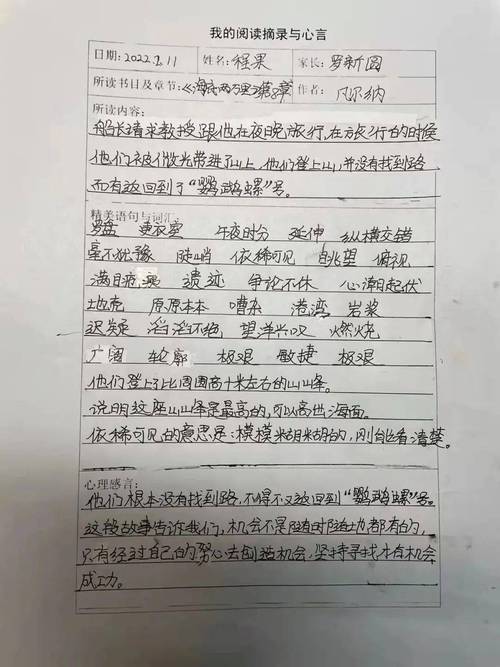 我的阅读摘录与心言
日期:2022.2.11 姓名:程果 家长:罗新圆
所读书目及章节:《海底两万里》第8章 作者:凡尔纳
所读内容:
船长请求教授跟他在夜晚旅行,在旅行的时候
他们被微光带进了山上,他们登上山,并没有找到路
而有返回到了“鹦鹉螺”号。
精美语句与词汇:
罗盘 更衣室 午夜时分 延伸 纵横交错
毫不犹豫 陡峭 依稀可见 眺望 俯视
满目疮痍 遗迹 争论不休 心潮起伏
地壳 原原本本 嘈杂 港湾 岩浆
迟疑 滔滔不绝 望洋兴叹 燃烧
广阔 轮廓 极艰 敏捷 极艰
他们登上比周围高十米左右的山峰。
说明这座山峰是最高的,可以高出海面。
依稀可见的意思是:模模糊糊的,刚能看清楚。
心理感言:
他们根本没有找到路,不得不又返回到“鹦鹉螺”号。
这段故事告诉我们,机会不是随时随地都有的,
只有经过自己的努心去创造机会,坚持寻找才有机会
成功。